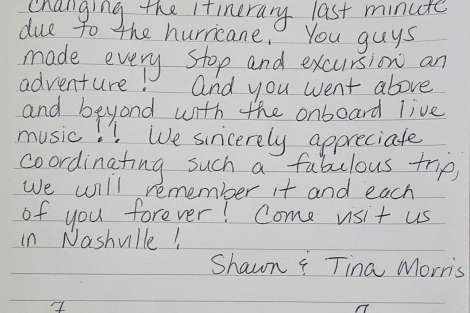 changing the itinerary last minute
due to the hurricane. You guys
made every stop and excursion an
adventure! And you went above
and beyond with the onboard live
music!! We sincerely appreciate
coordinating such a fabulous trip,
we will remember it and each
of you forever! Come visit us
in Nashville!
Shawn & Tina Morris